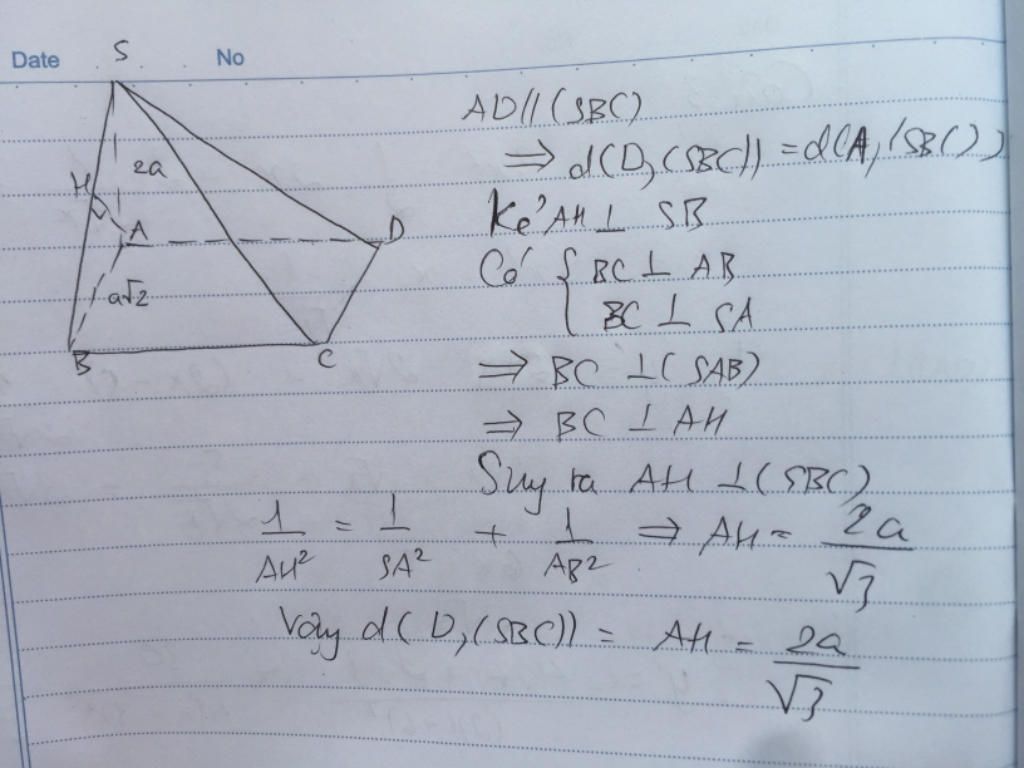 Date No
S
2a
H
A
D
a√2
B
C
AD // (SBC)
⇒ d(D, (SBC)) = d(A, (SBC))
Kẻ AH ⊥ SB
Có { BC ⊥ AB
BC ⊥ SA
⇒ BC ⊥ (SAB)
⇒ BC ⊥ AH
Suy ra AH ⊥ (SBC)
1/AH² = 1/SA² + 1/AB² ⇒ AH = 2a/√3
Vậy d(D, (SBC)) = AH = 2a/√3